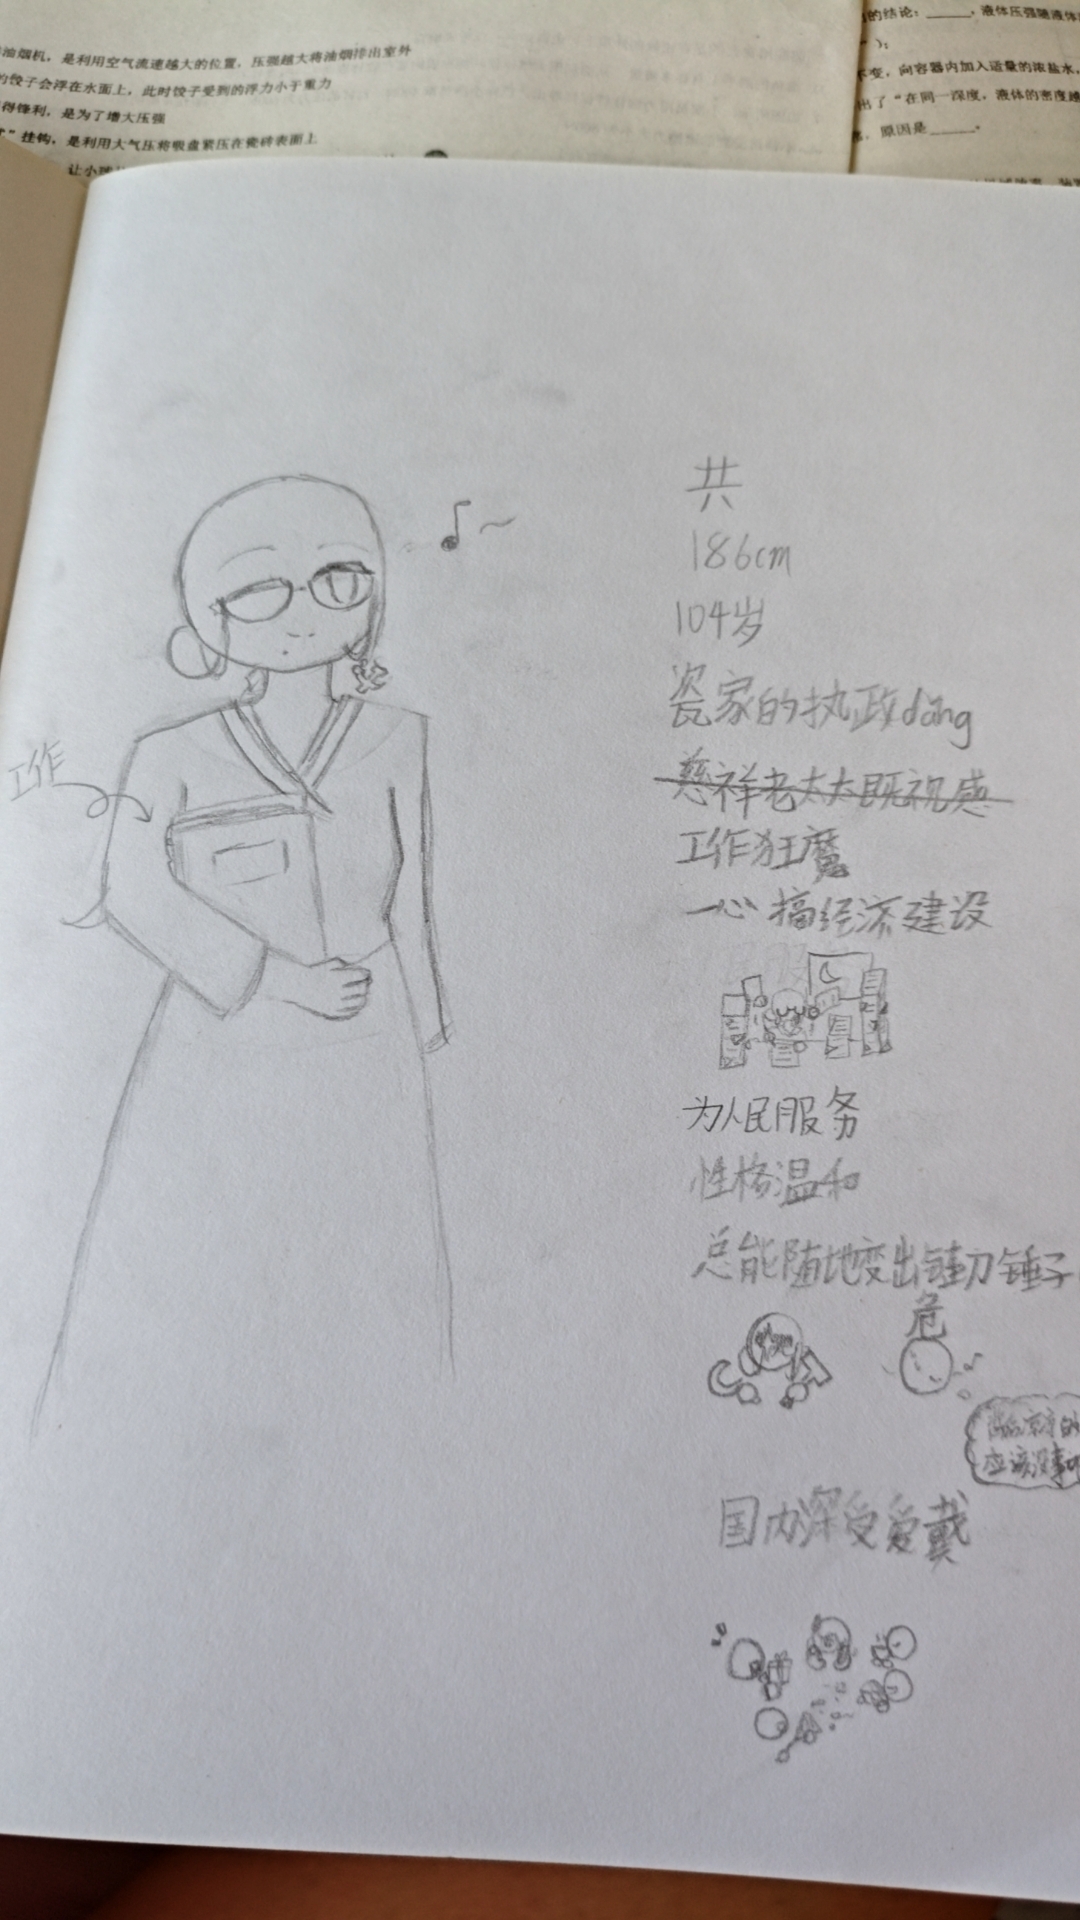 油烟机，是利用空气流速越大的位置，压强越大将油烟排出室外
的饺子会浮在水面上，此时饺子受到的浮力小于重力
得锋利，是为了增大压强
”挂钩，是利用大气压将吸盘紧压在瓷砖表面上
让小
的结论：______，液体压强随液体
）；
不变，向容器内加入适量的浓盐水，
出了“在同一深度，液体的密度越
原因是______。
共
186cm
104岁
瓷家的执政dang
慈祥老太太既视感
工作狂魔
一心搞经济建设
工作
为人民服务
性格温和
总能随地变出镰刀锤子
危
应该没事
国内深受爱戴